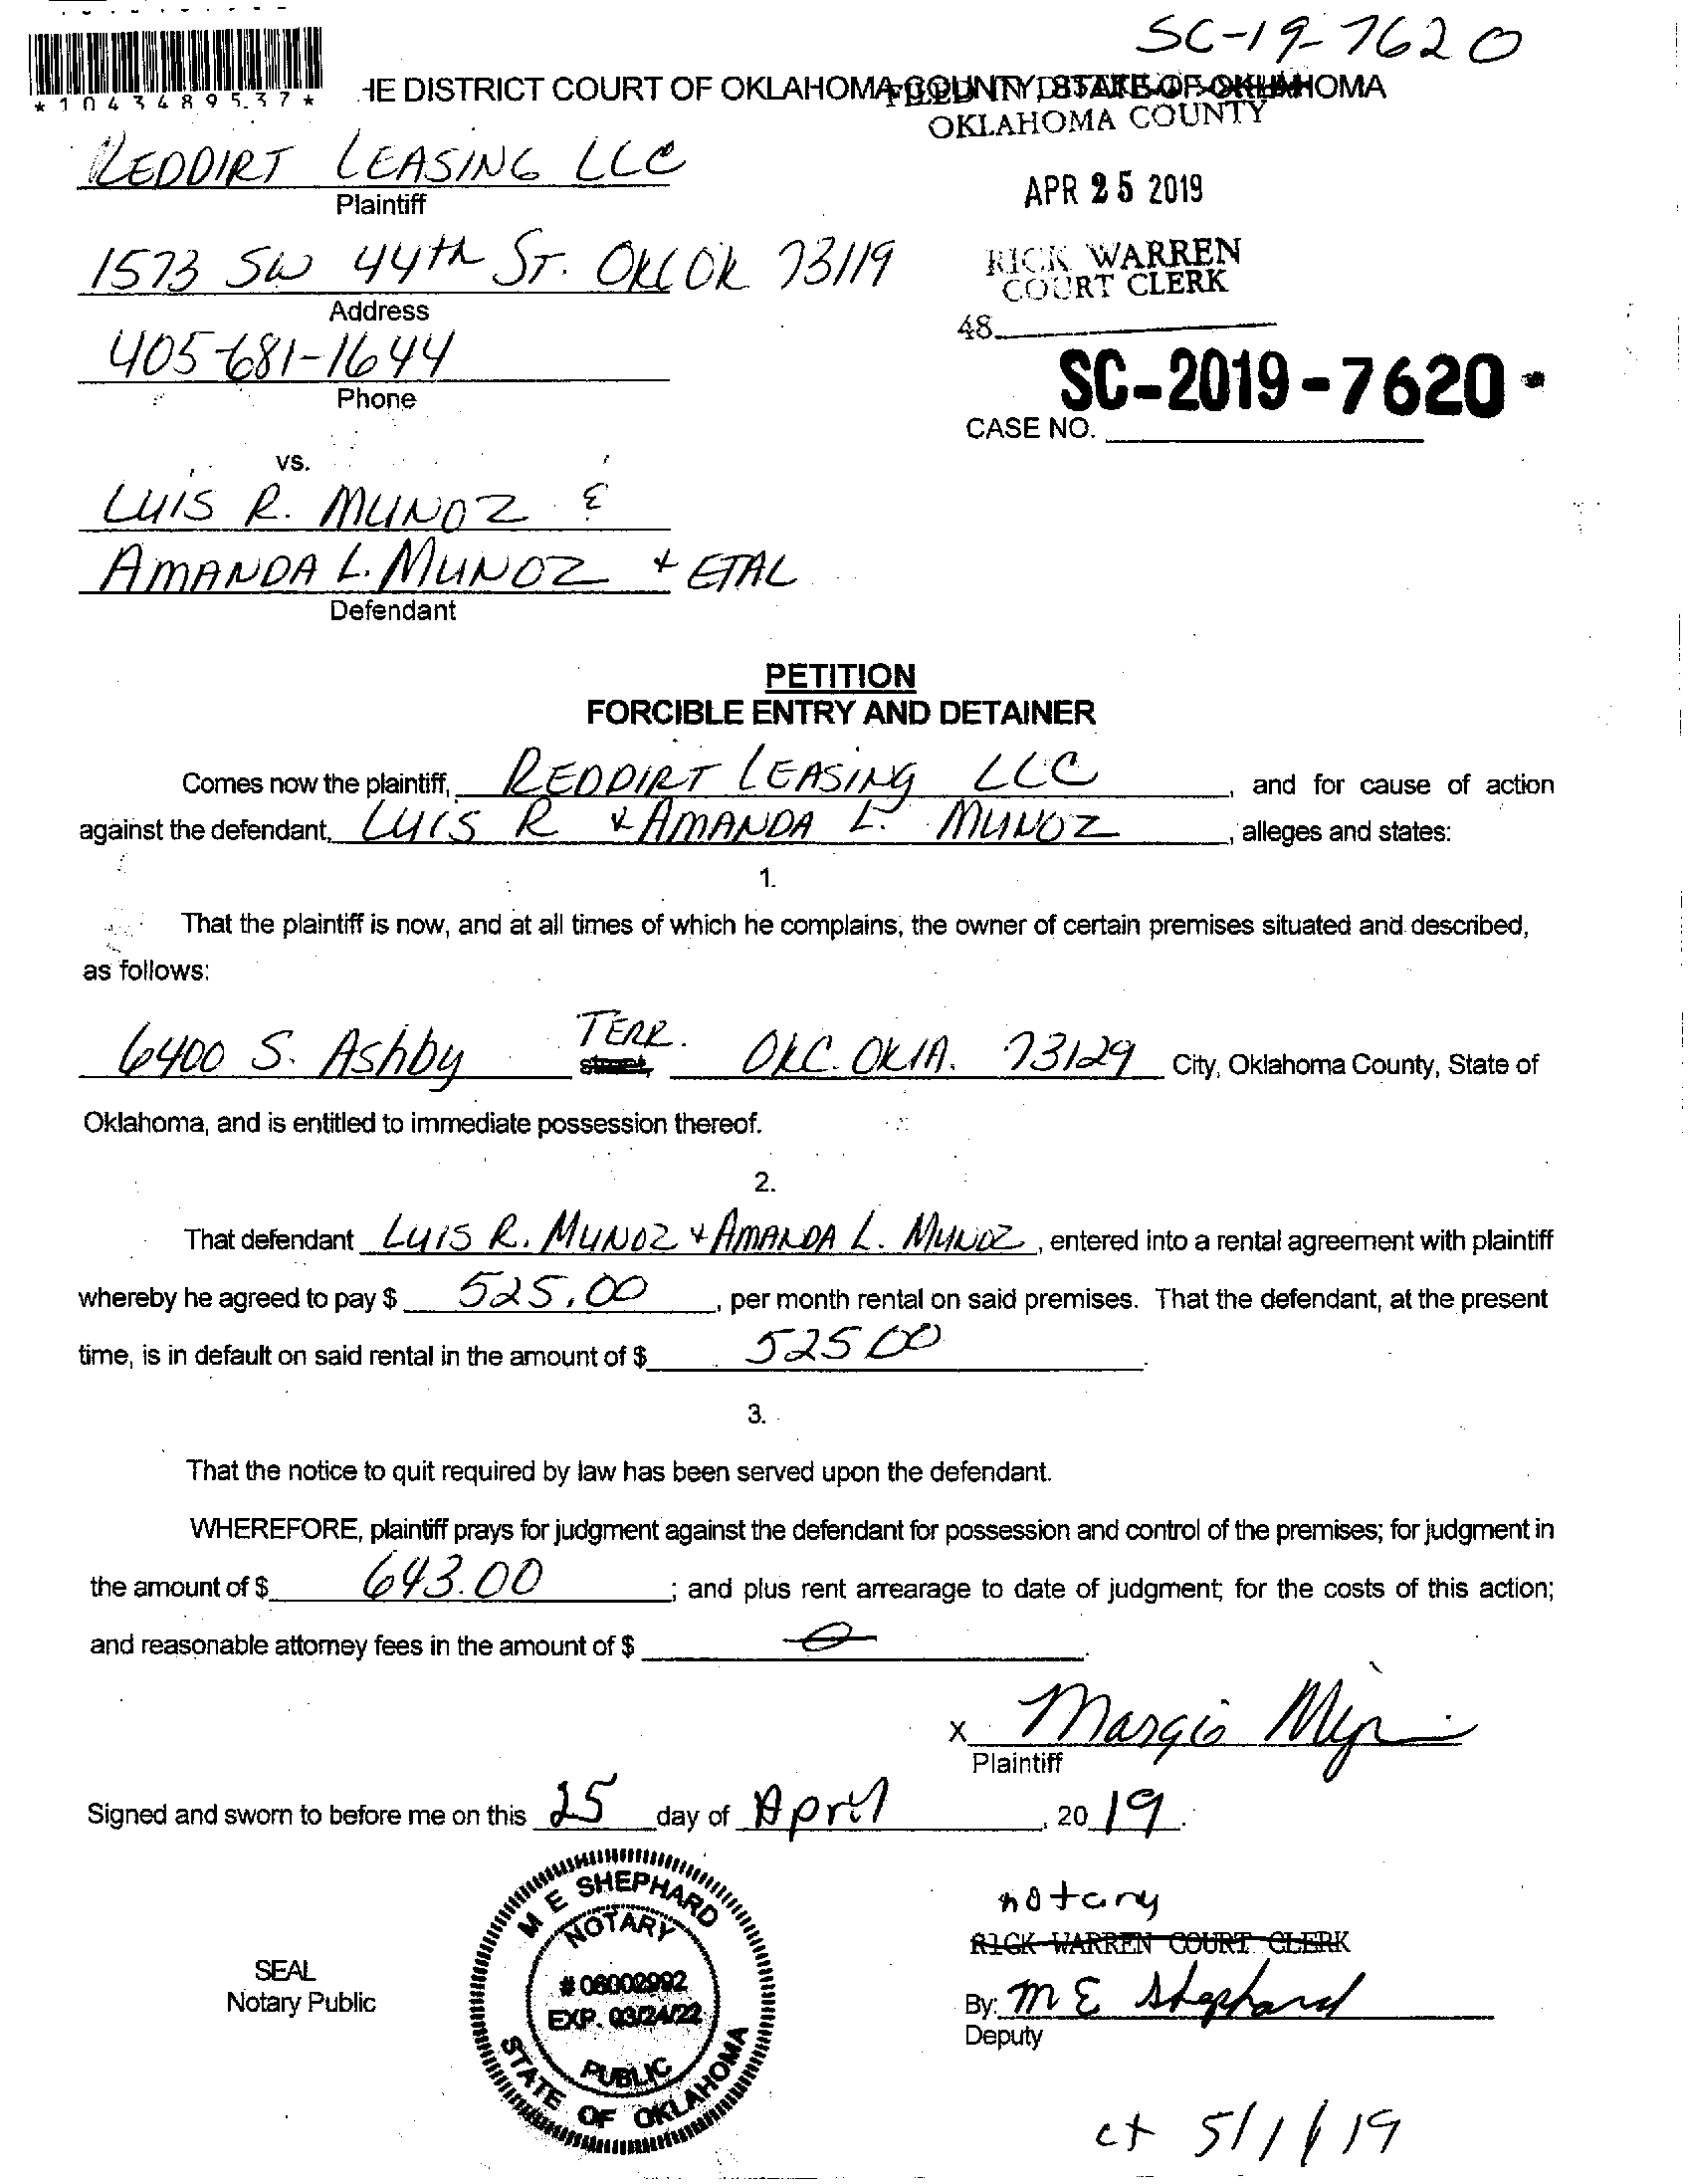 SC-19-7620
*1043489537*
HE DISTRICT COURT OF OKLAHOMA COUNTY, STATE OF OKLAHOMA
OKLAHOMA COUNTY
REDDIRT LEASING LLC
Plaintiff
APR 25 2019
1573 SW 44th ST. OKC OK 73119
Address
RICK WARREN
COURT CLERK
405-681-1644
Phone
48
SC-2019-7620
CASE NO.
vs.
LUIS R. MUNOZ &
AMANDA L. MUNOZ + ETAL
Defendant
PETITION
FORCIBLE ENTRY AND DETAINER
Comes now the plaintiff, REDDIRT LEASING LLC, and for cause of action
against the defendant, LUIS R & AMANDA L. MUNOZ, alleges and states:
1.
That the plaintiff is now, and at all times of which he complains, the owner of certain premises situated and described,
as follows:
6400 S. Ashby TERR. street, OKC. OKLA. 73129 City, Oklahoma County, State of
Oklahoma, and is entitled to immediate possession thereof.
2.
That defendant LUIS R. MUNOZ & AMANDA L. MUNOZ, entered into a rental agreement with plaintiff
whereby he agreed to pay $ 525.00, per month rental on said premises. That the defendant, at the present
time, is in default on said rental in the amount of $ 525 00.
3.
That the notice to quit required by law has been served upon the defendant.
WHEREFORE, plaintiff prays for judgment against the defendant for possession and control of the premises; for judgment in
the amount of $ 643.00; and plus rent arrearage to date of judgment; for the costs of this action;
and reasonable attorney fees in the amount of $ 0.
X Margio
Plaintiff
Signed and sworn to before me on this 25 day of April, 2019.
M E SHEPHARD
NOTARY
# 06002992
EXP. 03/24/22
PUBLIC
STATE OF OKLAHOMA
SEAL
Notary Public
notary
RICK WARREN COURT CLERK
By: M E Shephard
Deputy
ct 5/1/19